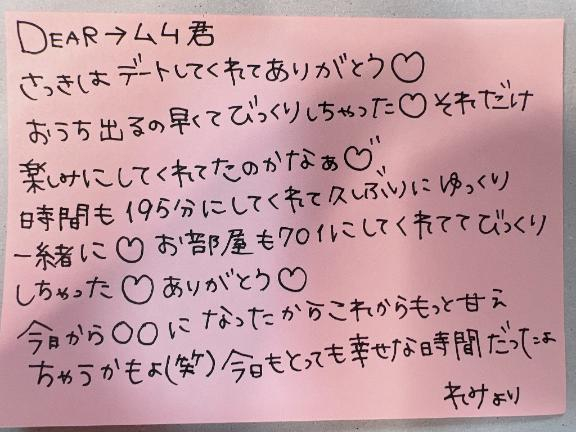 DEAR→ムム君
さっきはデートしてくれてありがとう♡
おうち出るの早くてびっくりしちゃった♡それだけ
楽しみにしてくれてたのかなぁ♡゛
時間も195分にしてくれて久しぶりにゆっくり
一緒に♡お部屋も701にしてくれててびっくり
しちゃった♡ありがとう♡
今日から〇〇になったからこれからもっと甘え
ちゃうかもよ(笑)今日もとっても幸せな時間だったよ
れみより